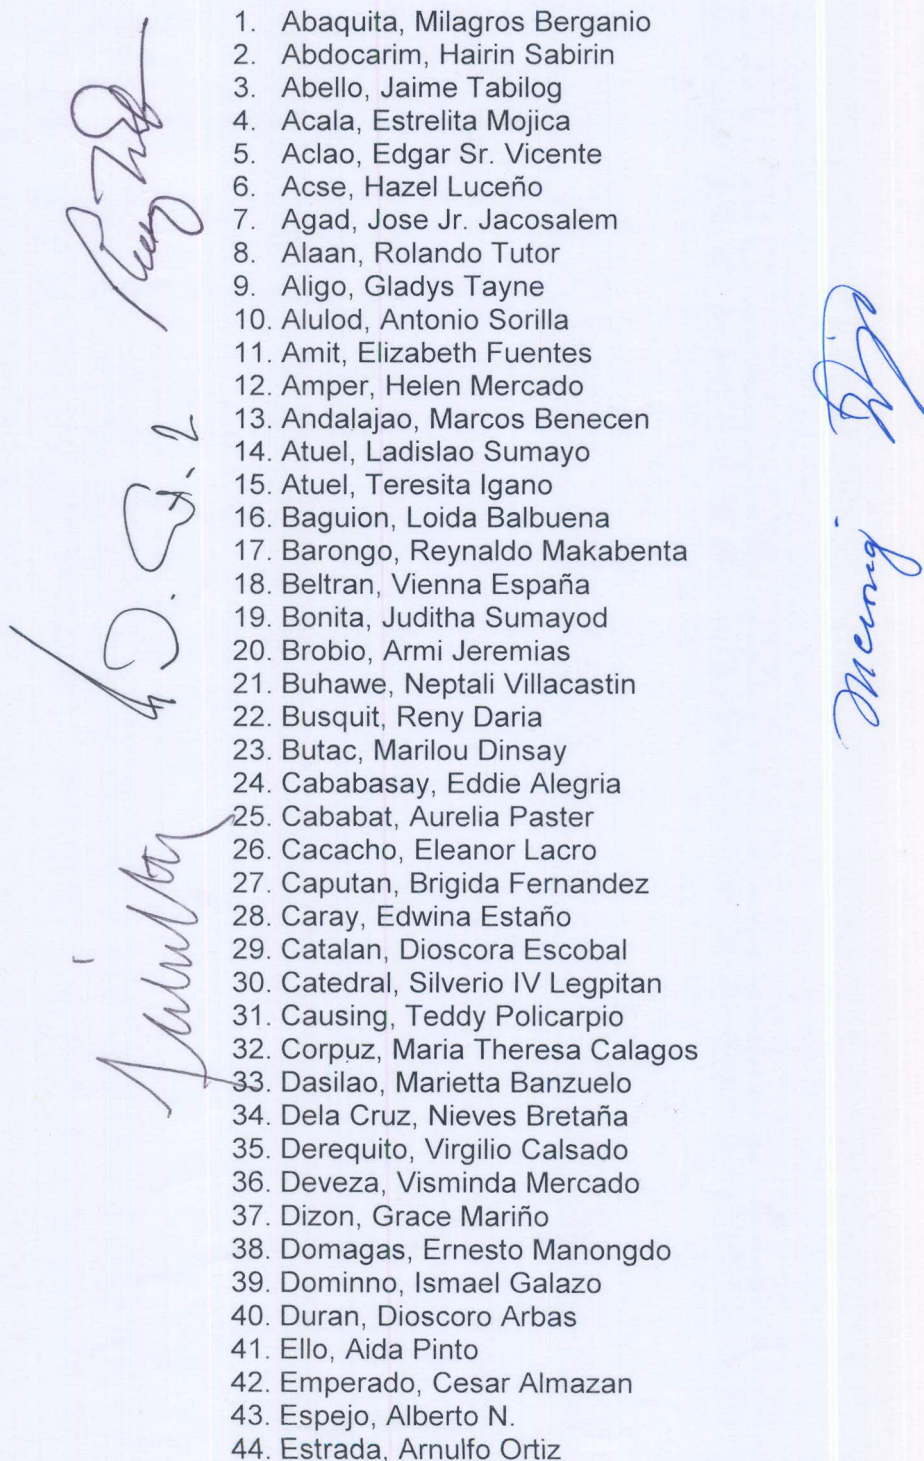 1. Abaquita, Milagros Berganio
2. Abdocarim, Hairin Sabirin
3. Abello, Jaime Tabilog
4. Acala, Estrelita Mojica
5. Aclao, Edgar Sr. Vicente
6. Acse, Hazel Luceño
7. Agad, Jose Jr. Jacosalem
8. Alaan, Rolando Tutor
9. Aligo, Gladys Tayne
10. Alulod, Antonio Sorilla
11. Amit, Elizabeth Fuentes
12. Amper, Helen Mercado
13. Andalajao, Marcos Benecen
14. Atuel, Ladislao Sumayo
15. Atuel, Teresita Igano
16. Baguion, Loida Balbuena
17. Barongo, Reynaldo Makabenta
18. Beltran, Vienna España
19. Bonita, Juditha Sumayod
20. Brobio, Armi Jeremias
21. Buhawe, Neptali Villacastin
22. Busquit, Reny Daria
23. Butac, Marilou Dinsay
24. Cababasay, Eddie Alegria
25. Cababat, Aurelia Paster
26. Cacacho, Eleanor Lacro
27. Caputan, Brigida Fernandez
28. Caray, Edwina Estaño
29. Catalan, Dioscora Escobal
30. Catedral, Silverio IV Legpitan
31. Causing, Teddy Policarpio
32. Corpuz, Maria Theresa Calagos
33. Dasilao, Marietta Banzuelo
34. Dela Cruz, Nieves Bretaña
35. Derequito, Virgilio Calsado
36. Deveza, Visminda Mercado
37. Dizon, Grace Mariño
38. Domagas, Ernesto Manongdo
39. Dominno, Ismael Galazo
40. Duran, Dioscoro Arbas
41. Ello, Aida Pinto
42. Emperado, Cesar Almazan
43. Espejo, Alberto N.
44. Estrada, Arnulfo Ortiz